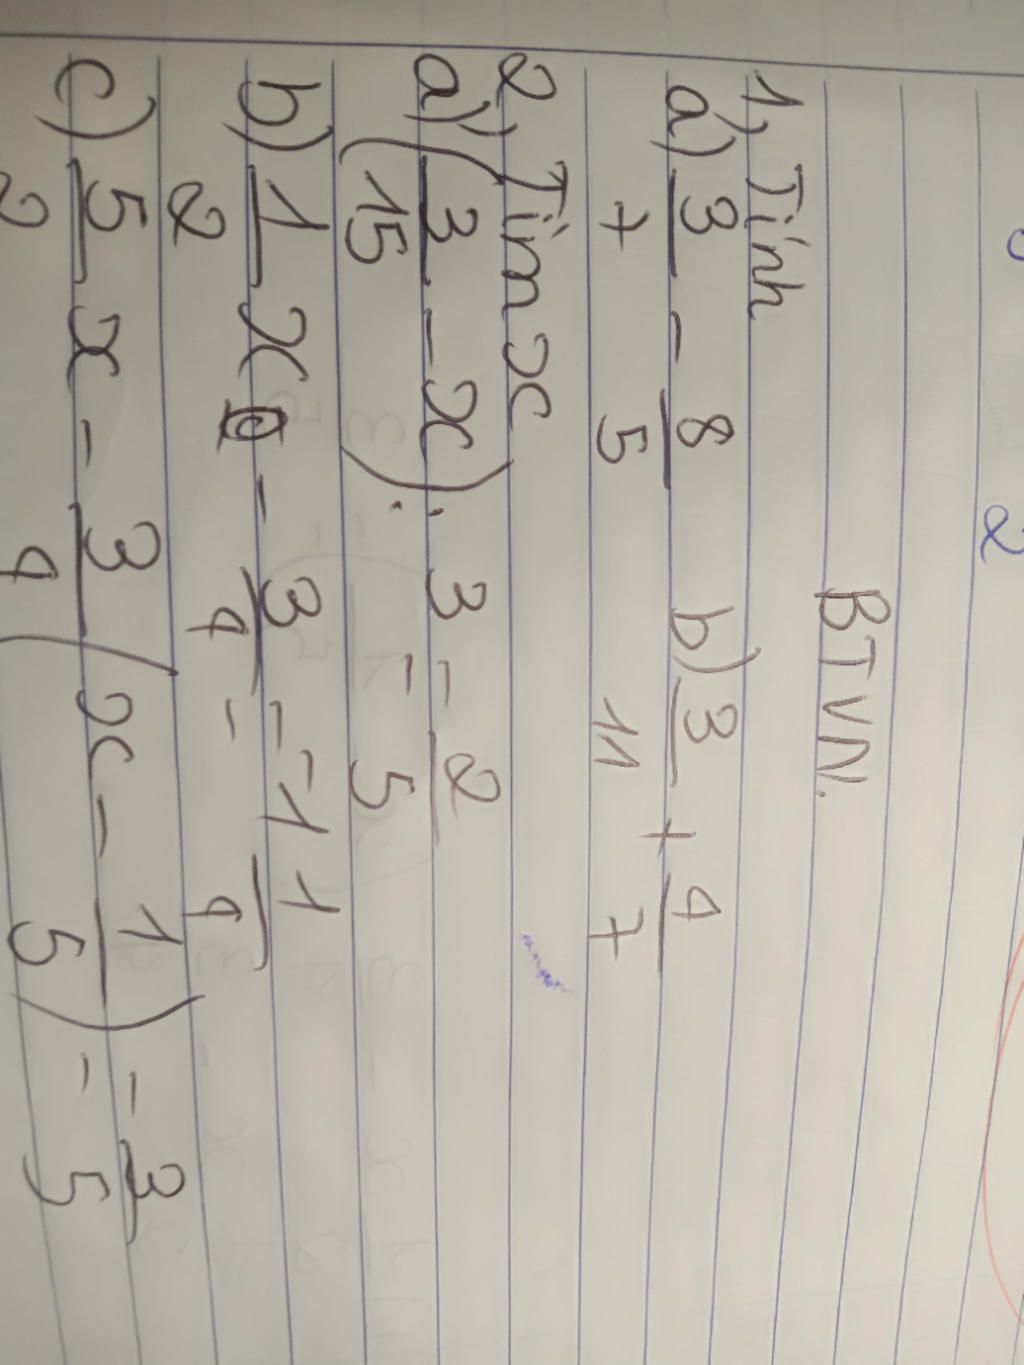 BTVN.
1, Tính
a) 3/7 - 8/5 b) 3/11 + 4/7
2, Tìm x
a) (3/15 - x) : 3 = 2/5
b) 1/2 x - 3/4 = -1 1/4
c) 5/2 x - 3/4 (x - 1/5) = 3/5